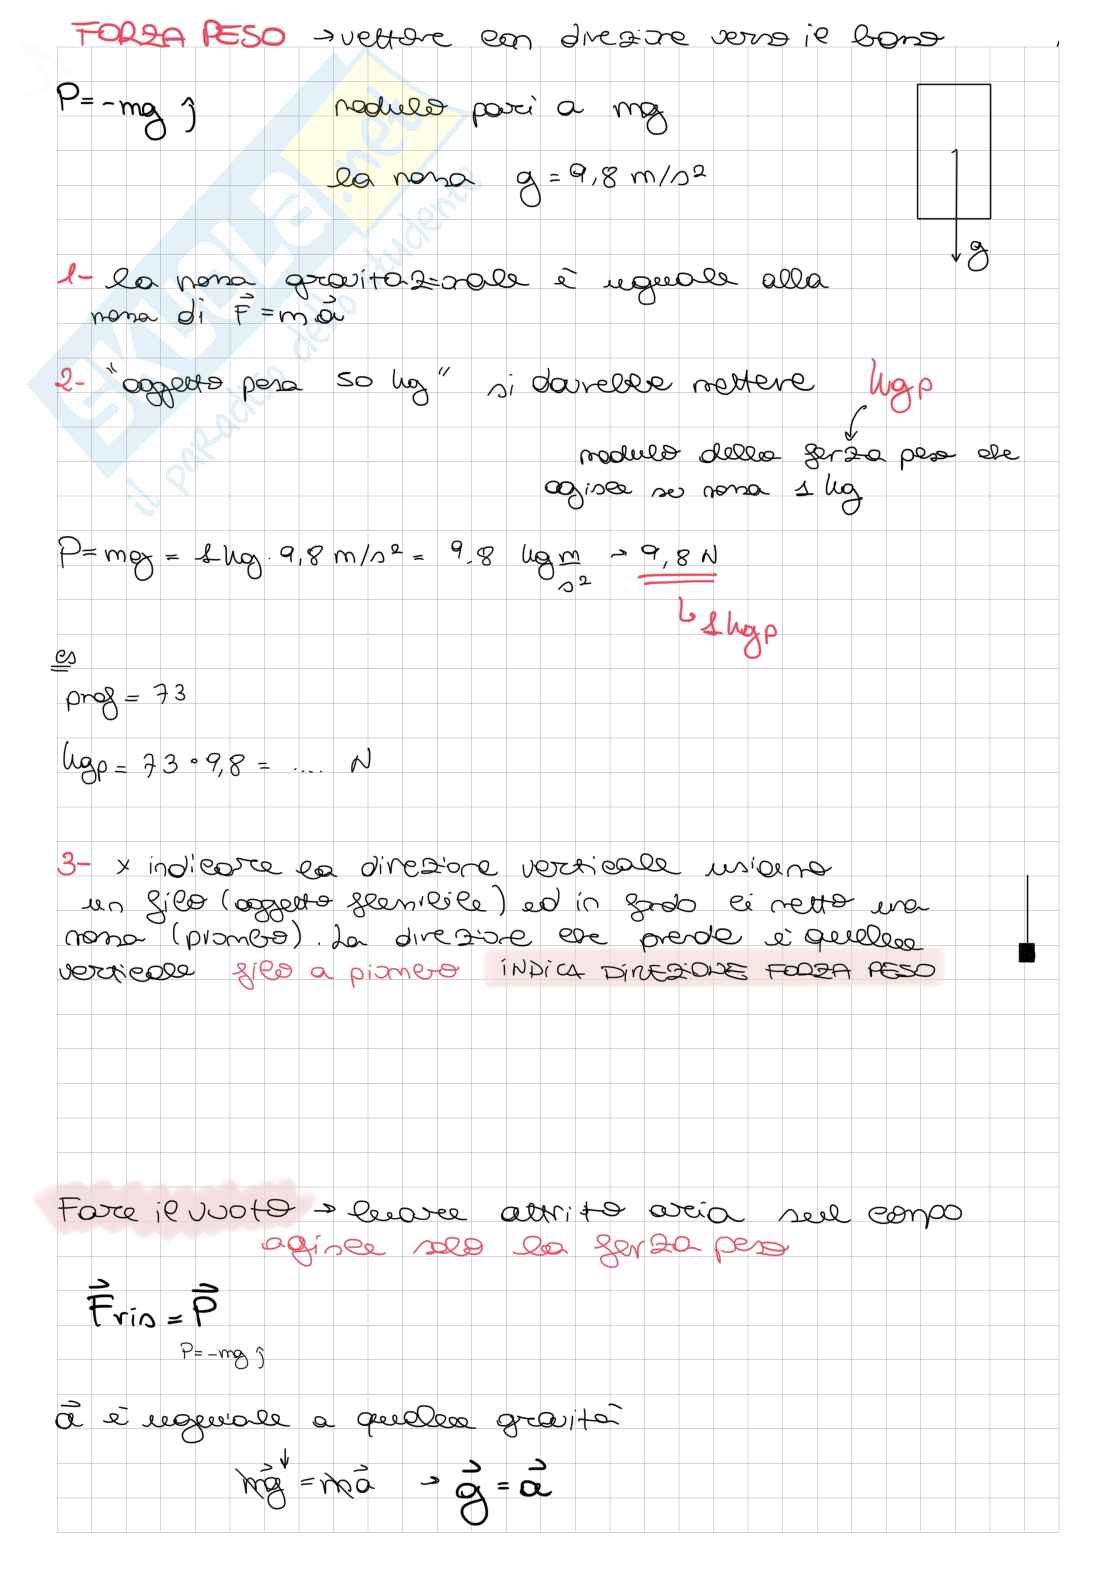 FORZA PESO → vettore con direzione verso il basso
P = -mg ĵ modulo pari a mg
la massa g = 9,8 m/s²
g
1- la massa gravitazionale è uguale alla
massa di F⃗ = m a⃗
2- "oggetto pesa 50 kg" si dovrebbe mettere kgp
modulo della forza peso che
agisce su massa 1 kg
P = mg = 1 kg · 9,8 m/s² = 9.8 kg m/s² → 9,8 N
↳ 1 kgp
es
prof = 73
kgp = 73 · 9,8 = .... N
3- x indicare la direzione verticale usiamo
un filo (oggetto flessibile) ed in fondo ci metto una
massa (piombo). La direzione che prende è quella
verticale filo a piombo INDICA DIREZIONE FORZA PESO
Fare il vuoto → levare attrito aria sul corpo
agisce solo la forza peso
F⃗ris = P⃗
P = -mg ĵ
a⃗ è uguale a quella gravità
mg⃗ = ma⃗ → g⃗ = a⃗
SKUOLA.net
il paradiso dello studente